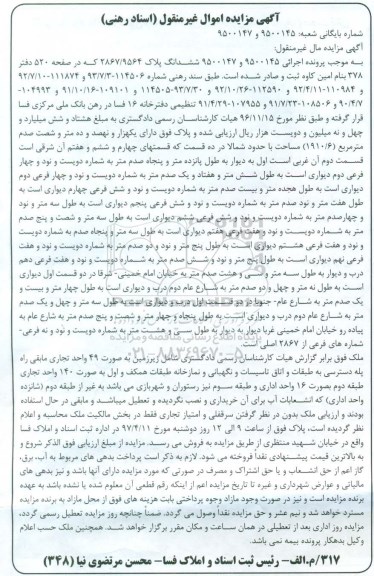 آگهی مزایده اموال غیرمنقول (اسناد رهنی)
شماره بایگانی شعبه: ۹۵۰۰۱۴۵ و ۹۵۰۰۱۴۷
آگهی مزایده مال غیرمنقول:
به موجب پرونده اجرائی ۹۵۰۰۱۴۵ و ۹۵۰۰۱۴۷ ششدانگ پلاک ۲۸۶۷/۹۵۶۴ که در صفحه ۵۲۰ دفتر
۳۷۸ بنام امین کاوه ثبت و صادر شده است. طبق سند رهنی شماره ۱۱۴۵۰۶-۹۳/۷/۳ و ۱۱۱۸۷۴-۹۲/۷/۱۰
و ۱۱۰۹۸۴-۹۲/۴/۱۱ و ۱۱۲۵۹۰-۹۲/۱۰/۲۶ و ۱۱۴۵۰۵-۹۳/۷/۳ و ۱۰۹۱۰۱-۹۱/۱۰/۱۶ و ۱۰۴۹۹۳-
۹۰/۴/۷ و ۱۰۸۵۰۶-۹۱/۷/۲۳ و ۱۰۷۹۵۵-۹۱/۴/۲۹ تنظیمی دفترخانه ۱۶ فسا در رهن بانک ملی مرکزی فسا
قرار گرفته و طبق نظر مورخ ۹۶/۱۱/۱۵ هیات کارشناسان رسمی دادگستری به مبلغ هشتاد و شش میلیارد و
چهل و نه میلیون و دویست هزار ریال ارزیابی شده و پلاک فوق دارای یکهزار و نهصد و ده متر و شصت صدم
مترمربع (۱۹۱۰/۶) مساحت با حدود شمالا در ده قسمت که قسمتهای چهارم و ششم و هفتم آن شرقی است
قسمت دوم آن غربی است اول به دیوار به طول پانزده متر و پنجاه صدم متر به شماره دویست و نود و چهار
فرعی دوم دیواری است به طول شش متر و هفتاد و یک صدم متر به شماره دویست و نود و چهار فرعی سوم
دیواری است به طول هجده متر و بیست صدم متر به شماره دویست و نود و شش فرعی چهارم دیواری است به
طول هفت متر و نود صدم متر به شماره دویست و نود و شش فرعی پنجم دیواری است به طول سه متر و نود
و چهارصدم متر به شماره دویست و نود و شش فرعی ششم دیواری است به طول سه متر و شصت و پنج صدم
متر به شماره دویست و نود و هفت فرعی هفتم دیواری است به طول سه متر و پنجاه صدم متر به شماره دویست
و نود و هفت فرعی هشتم دیواری است به طول پنج متر و نود و دو صدم متر به شماره دویست و نود و هفت
فرعی نهم دیواری است به طول پنج متر و نود و شش صدم متر به شماره دویست و نود و هفت فرعی دهم
درب و دیوار به طول سه متر و سی و هشت صدم متر به خیابان امام خمینی- شرقا در دو قسمت اول دیواری
است به طول نه متر و چهل و دو صدم متر به شارع عام دوم درب و دیواری است به طول چهار متر و بیست و
یک صدم متر به شارع عام- جنوبا در دو قسمت اول درب و دیواری است به طول سه متر و چهل و یک صدم
متر به شارع عام دوم درب و دیواری است به طول پنجاه و چهار متر و شصت و پنج صدم متر به شارع عام به
پیاده رو خیابان امام خمینی غربا دیوار به دیوار به طول سی و هشت متر به شماره دویست و نود و نه فرعی-
شماره های فرعی از ۲۸۶۷ اصلی است.
ملک فوق برابر گزارش هیات کارشناسان رسمی دادگستری شامل زیرزمین به صورت ۴۹ واحد تجاری مابقی راه
پله دسترسی به طبقات و اتاق تاسیسات و نگهبانی و نمازخانه طبقات همکف و اول به صورت ۱۴۰ واحد تجاری
طبقه دوم بصورت ۱۶ واحد اداری و طبقه سوم نیز رستوران و شهربازی می باشد به غیر از طبقه دوم (شانزده
واحد اداری) که انشعابات آب برای آن خریداری و نصب نگردیده و تعطیل میباشد و مابقی در حال استفاده
بودند و ارزیابی ملک بدون در نظر گرفتن سرقفلی و امتیاز تجاری فقط در بخش مالکیت ملک محاسبه و اعلام
نظر گردیده است، پلاک فوق از ساعت ۹ الی ۱۲ روز دوشنبه مورخ ۹۷/۴/۱۱ در اداره ثبت اسناد و املاک فسا
واقع در خیابان شهید منتظری از طریق مزایده به فروش می رسد. مزایده از مبلغ ارزیابی فوق الذکر شروع و
به بالاترین قیمت پیشنهادی نقداً فروخته می شود. لازم به ذکر است پرداخت بدهی های مربوط به آب، برق،
گاز اعم از حق انشعاب و یا حق اشتراک و مصرف در صورتی که مورد مزایده دارای آنها باشد و نیز بدهی های
مالیاتی و عوارض شهرداری و غیره تا تاریخ مزایده اعم از اینکه رقم قطعی آن معلوم شده یا نشده باشد به عهده
برنده مزایده است و نیز در صورت وجود مازاد وجوه پرداختی بابت هزینه های فوق از محل مازاد به برنده مزایده
مسترد خواهد شد و نیم عشر و حق مزایده نقداً وصول می گردد، ضمناً چنانچه روز مزایده تعطیل رسمی گردد،
مزایده روز اداری بعد از تعطیلی در همان ساعت و مکان مقرر برگزار خواهد شد. همچنین ملک حسب اعلام
وکیل بدهکار پرونده بیمه نمی باشد.
۳۱۷/م.الف- رئیس ثبت اسناد و املاک فسا- محسن مرتضوی نیا (۳۴۸)